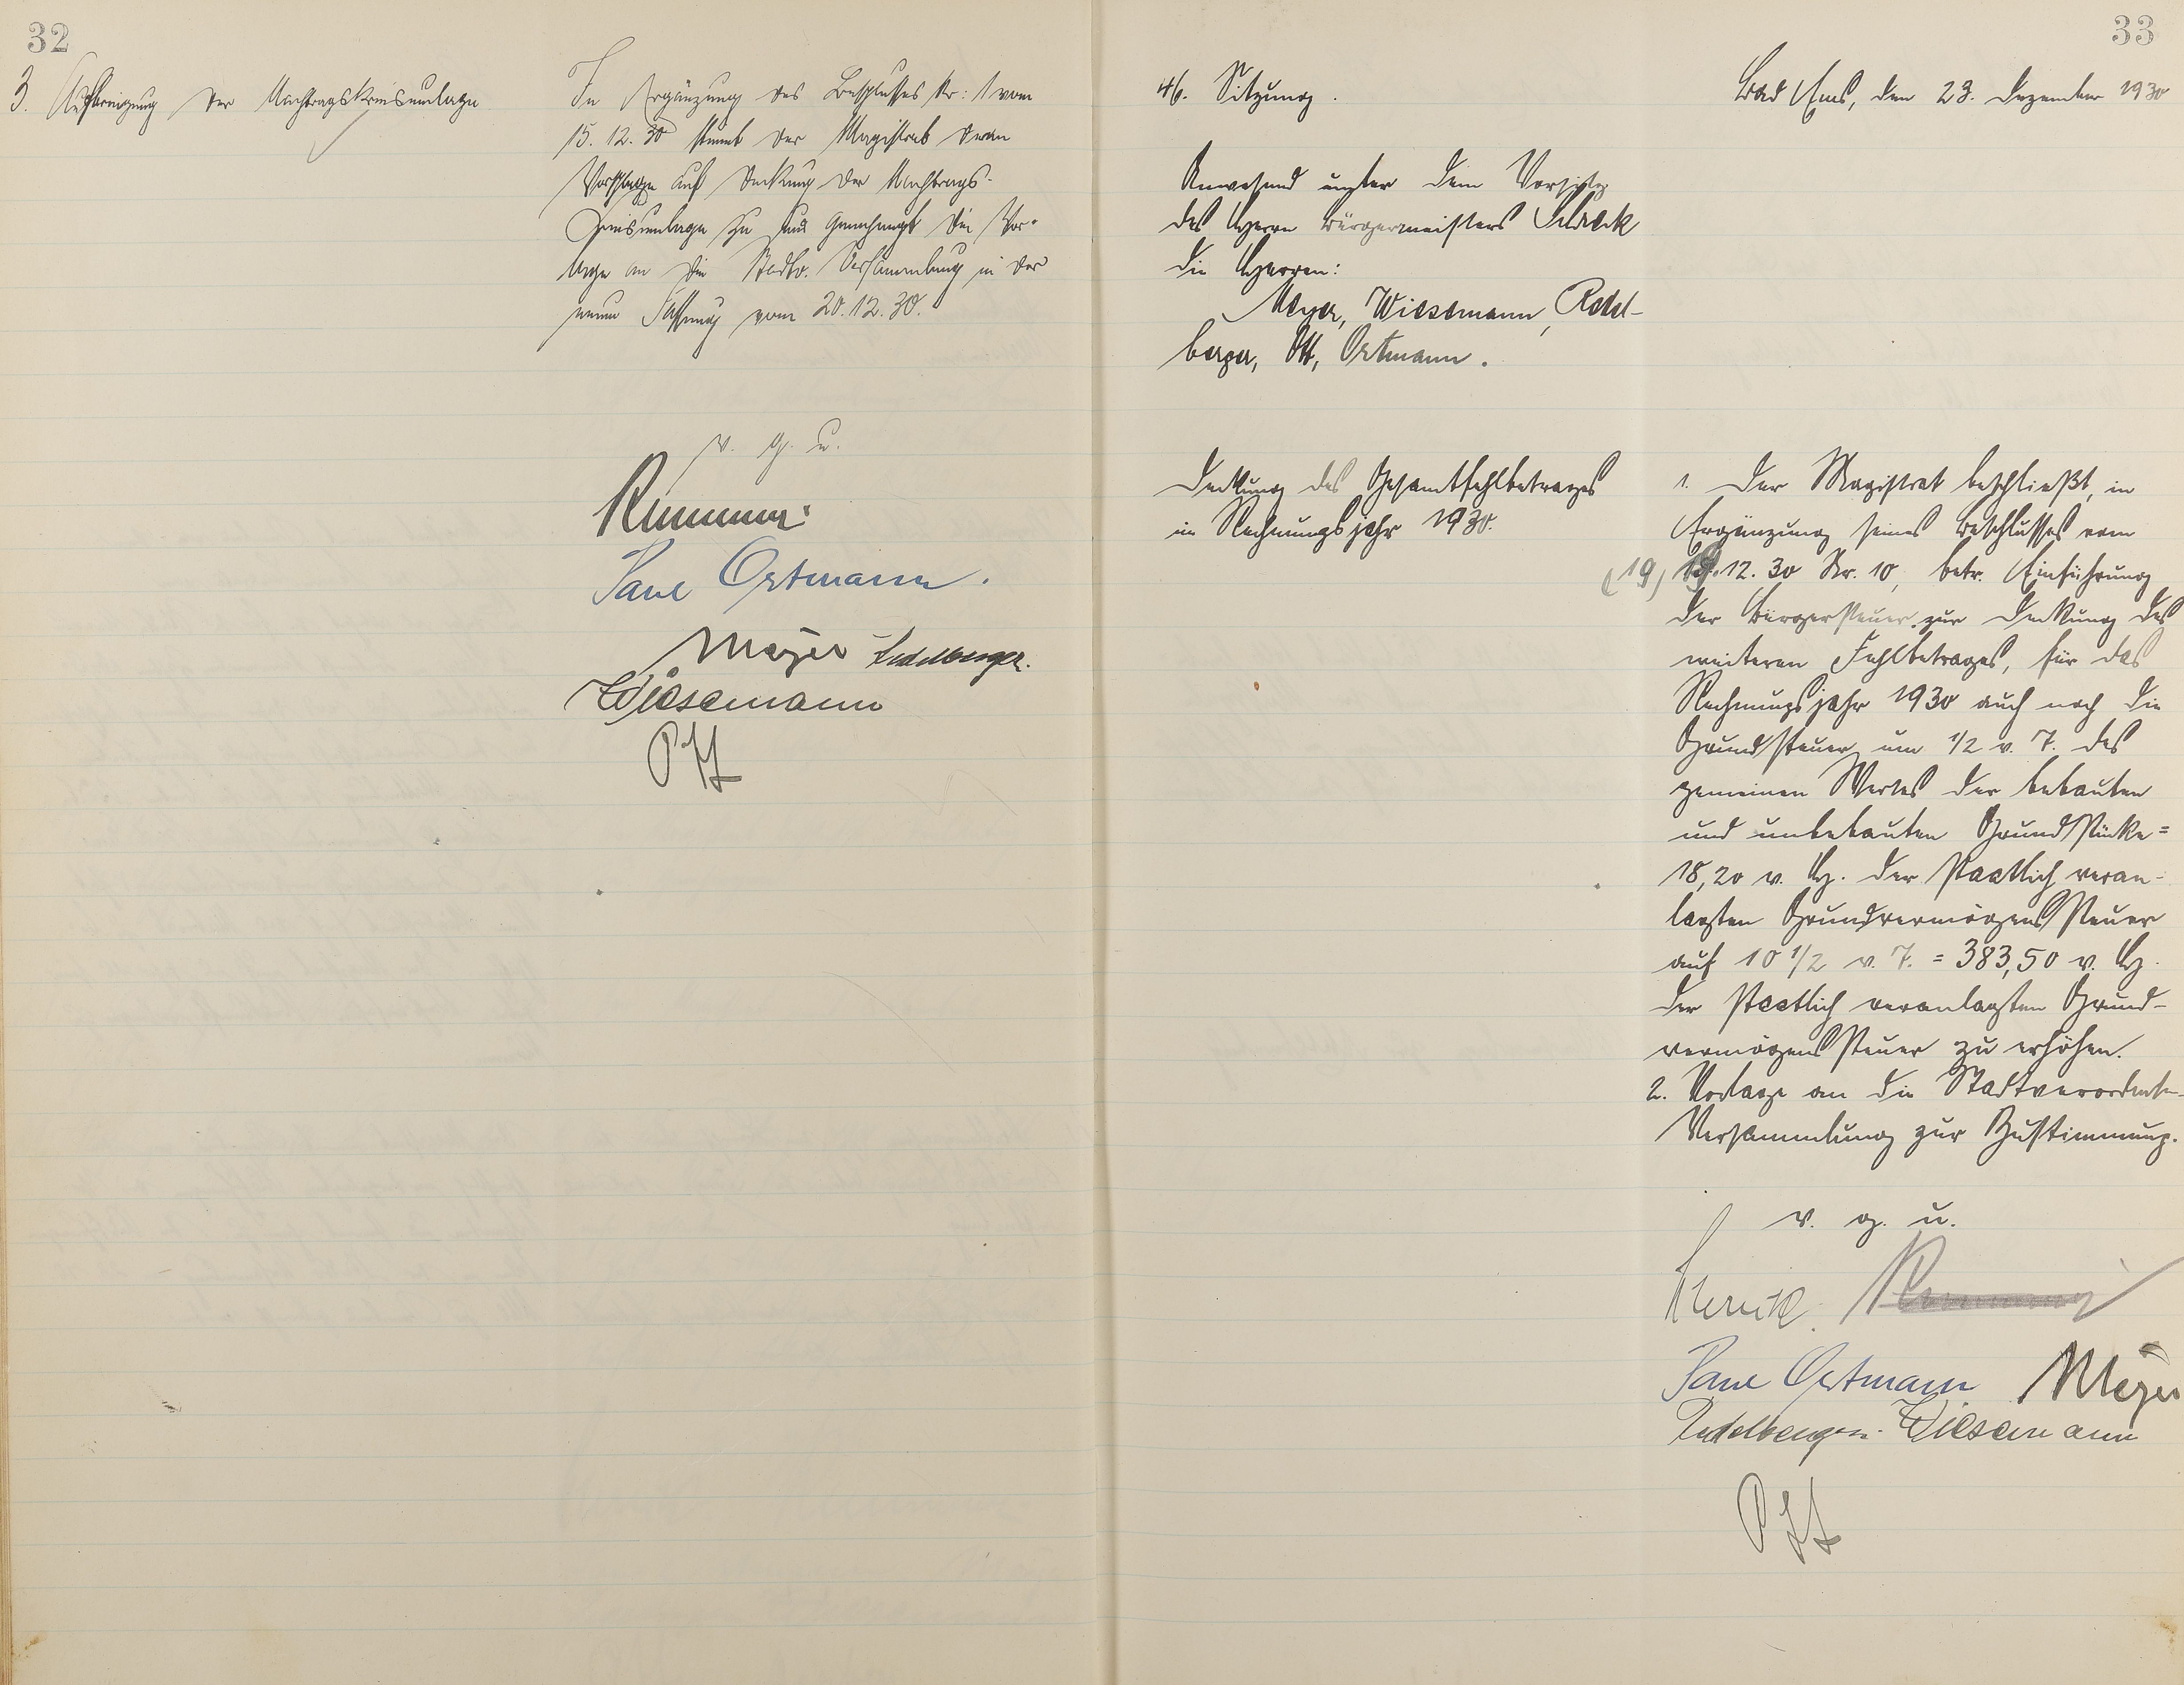 32
3. Aufbringung der Nachtragskreisumlage
In Ergänzung des Beschlusses Nr: 1 vom
15.12.30 stimmt der Magistrat dem
Vorschlage auf Deckung der Nachtrags-
kreisumlage zu und genehmigt die Vor-
lage an die Stadtv. Versammlung in der
neuen Fassung vom 20.12.30.
v. g. u.
Paul Ortmann.
Meyer Redelberger.
Wiesemann
Ott
33
46. Sitzung.
Bad Ems, den 23. Dezember 1930
Anwesend unter dem Vorsitz
des Herrn Bürgermeisters Schreck
die Herren:
Meyer, Wiesemann, Redel-
berger, Ott, Ortmann.
Deckung des Gesamtfehlbetrages
im Rechnungsjahr 1930.
1. Der Magistrat beschließt, in
Ergänzung seines Beschlusses vom
(19) 19.12.30 Nr. 10, betr. Einführung
der Bürgersteuer zur Deckung des
weiteren Fehlbetrages, für das
Rechnungsjahr 1930 auch noch die
Grundsteuer um 1/2 v. T. des
gemeinen Wertes der bebauten
und unbebauten Grundstücke =
18,20 v. H. der staatlich veran-
lagten Grundvermögenssteuer
auf 10 1/2 v. T. = 383,50 v. H.
der staatlich veranlagten Grund-
vermögenssteuer zu erhöhen.
2. Vorlage an die Stadtverordneten-
Versammlung zur Zustimmung.
v. g. u.
Schreck.
Paul Ortmann Meyer
Redelberger. Wiesemann
Ott